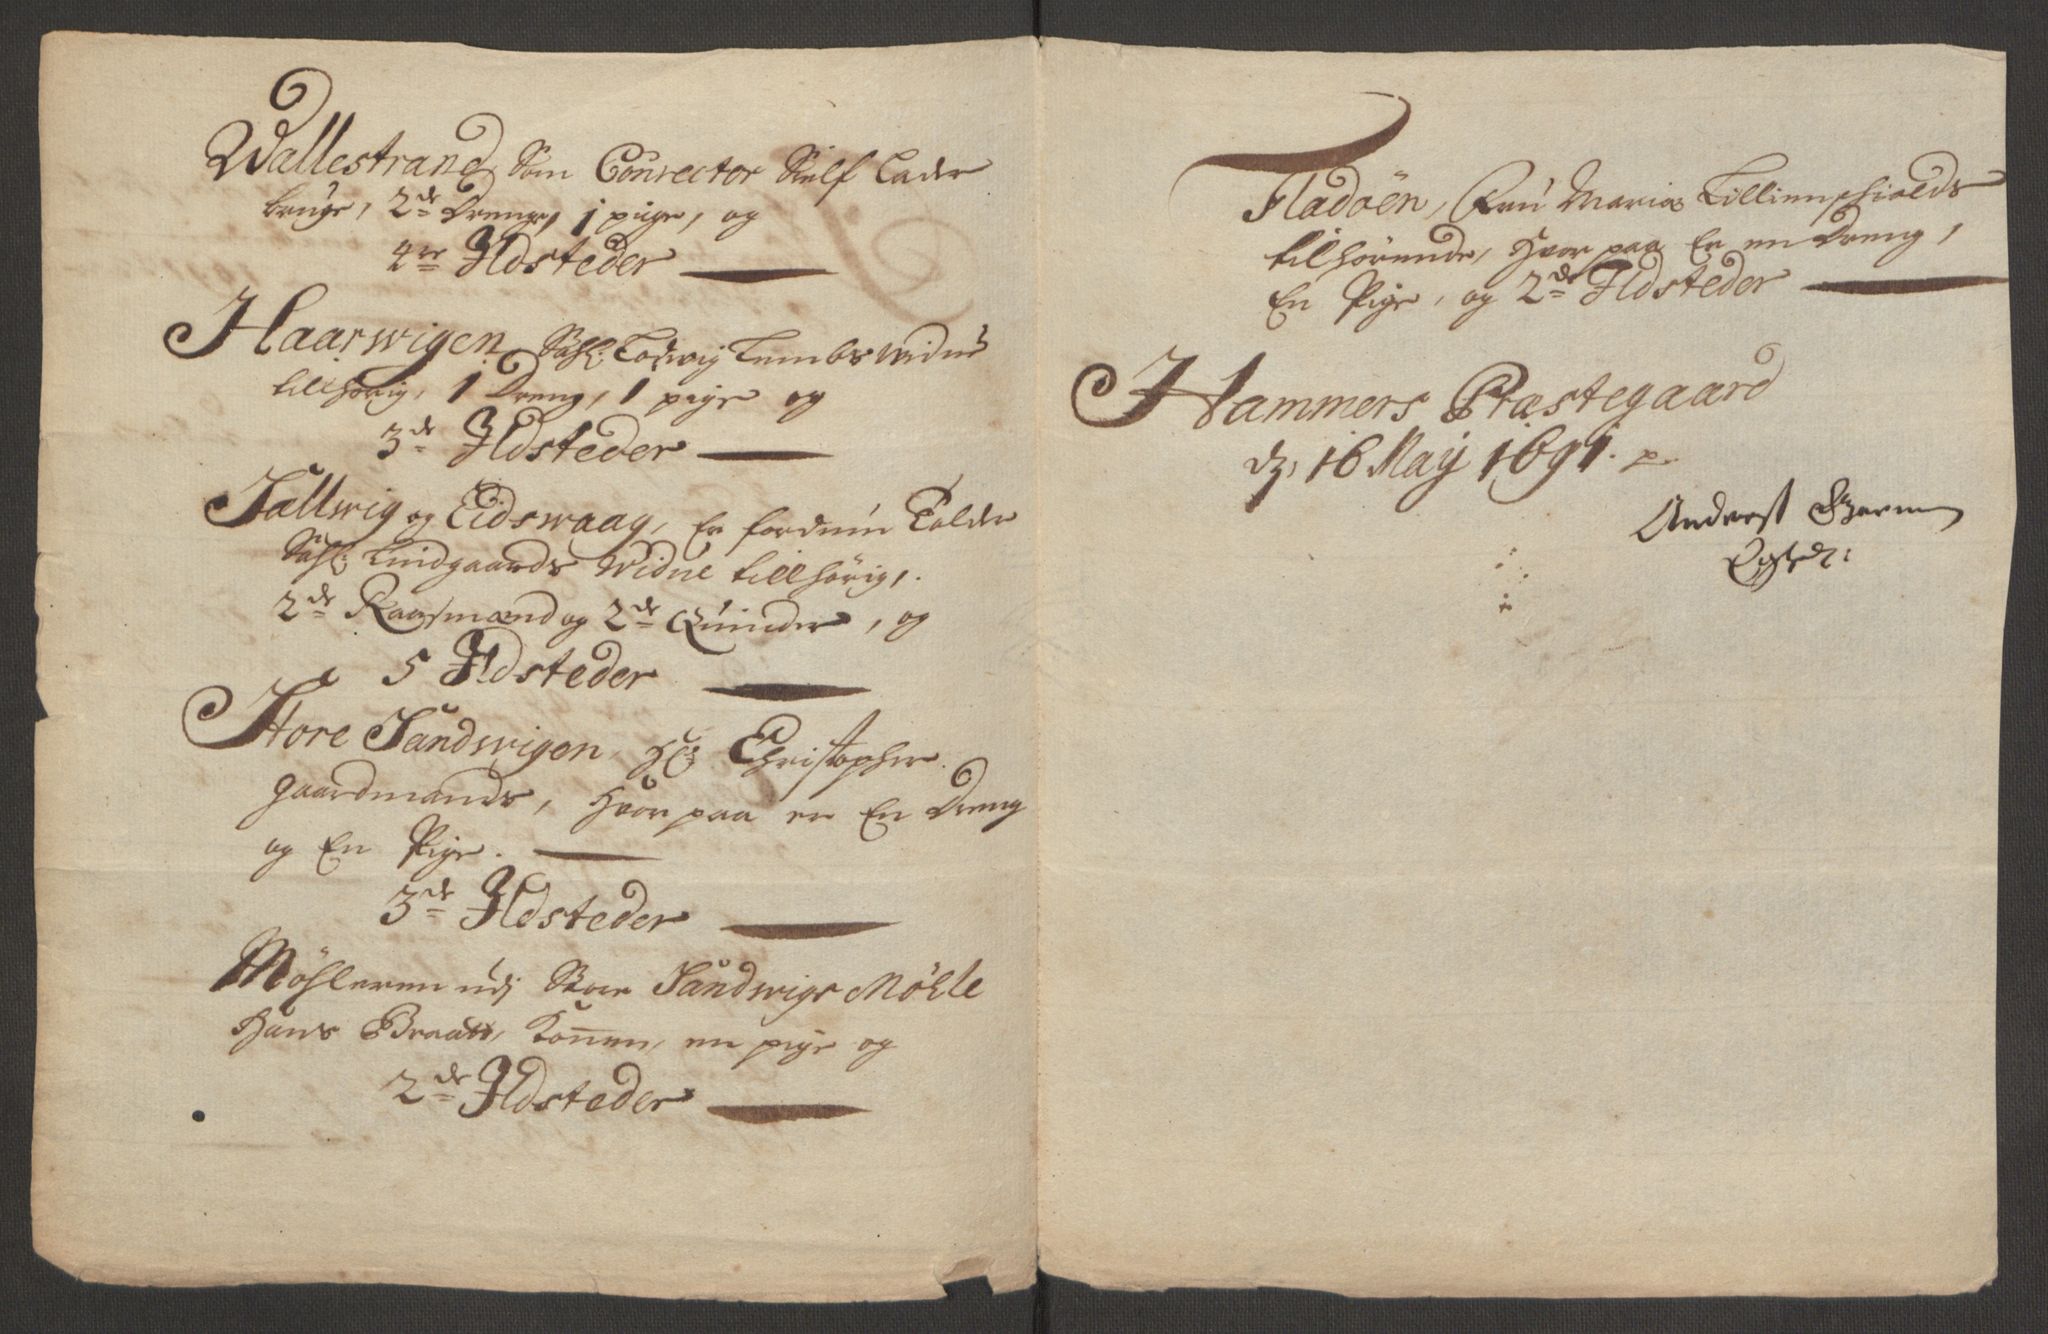 Wallestrand, Som Conrector Sielf Lader
bruge, 2de Drenge, 1 pige, og
4re Ildsteder
Haarwigen, Sahl: Lodwig Lembs widue
tillhörig, 1 Dreng, 1 pige og
3de Ildsteder
Sallwig og Eidswaag, Er fordum Tolder
Sahl: Lindgaards Widue tillhörig,
2de Kaarsmænd og 2de Quinder, og
5 Ildsteder
Store Sandwigen, Hr: Christopher
gaardmands, Hvor paa er En Dreng
og En Pige.
3de Ildsteder
Möhleren udj Store Sandwigs Möhle
Hans Braatt, Konnen, en pige og
2de Ildsteder
Fladöen, Fru Maria Lillienschiolds
tilhörende, Hvor paa Er en Dreng,
En Pige, og 2de Ildsteder
Hammers Præstegaard
dend 16 Maÿ 1691. p
Anders